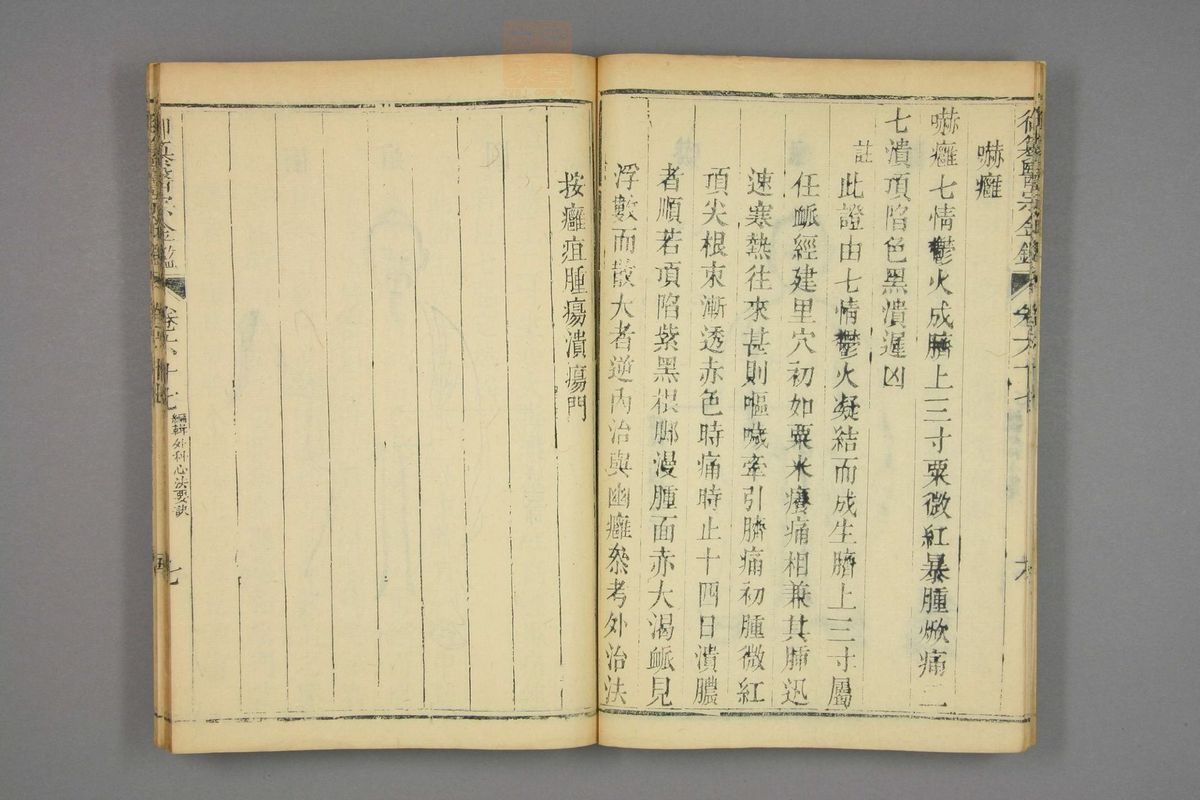 御纂醫宗金鑑 卷六十七 六
嚇癰
嚇癰七情鬱火成臍上三寸粟微紅暴腫焮痛二
七潰項陷色黑潰遲凶
註
此證由七情鬱火凝結而成生臍上三寸屬
任脈經建里穴初如粟米癢痛相兼其腫迅
速寒熱往來甚則嘔噦牽引臍痛初腫微紅
項尖根束漸透赤色時痛時止十四日潰膿
者順若項陷紫黑根脚漫腫面赤大渴脈見
浮數而散大者逆內治與幽癰叅考外治法
按癰疽腫瘍潰瘍門
御纂醫宗金鑑 卷六十七
編輯外科心法要訣
七